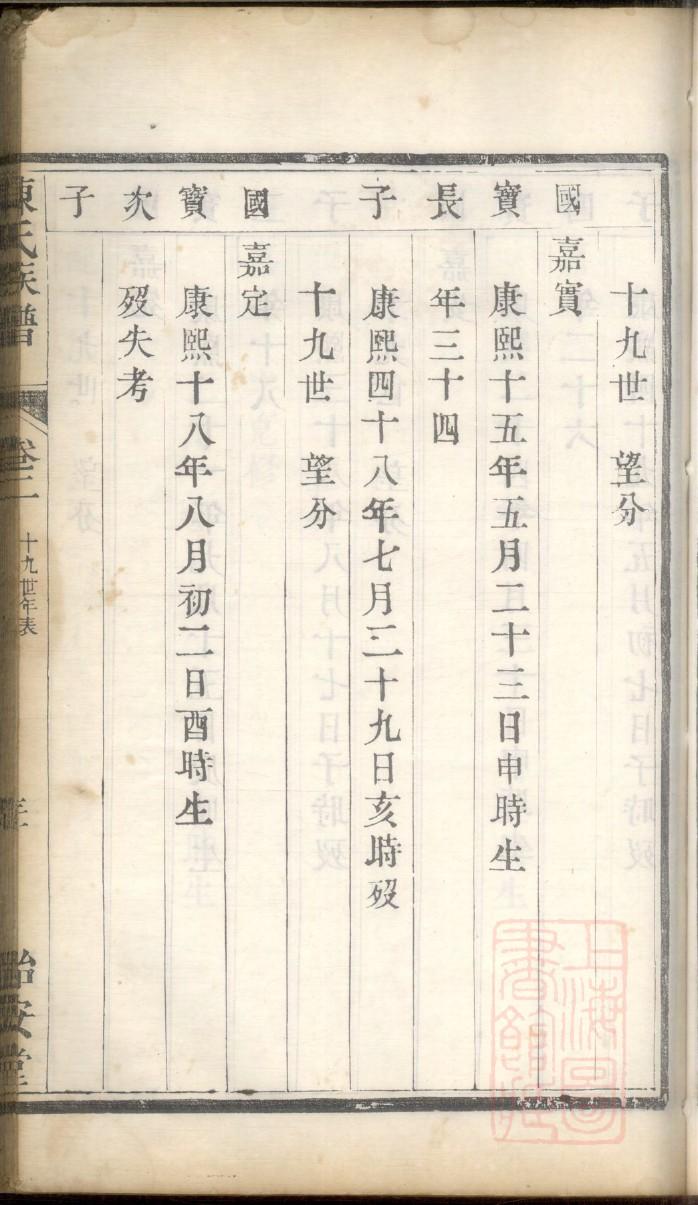 十九世 望分
國 嘉實
寶 康熙十五年五月二十三日申時生
長 年三十四
子 康熙四十八年七月二十九日亥時歿
十九世 望分
國 嘉定
寶 康熙十八年八月初二日酉時生
次 歿失考
子
陳氏族譜 卷二 十九世年表
上海圖
書館藏